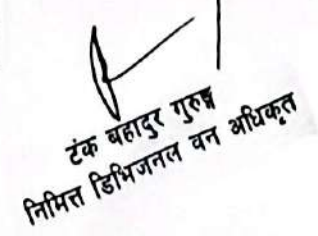 टंक बहादुर गुरुङ्ग
निमित्त डिभिजनल वन अधिकृत